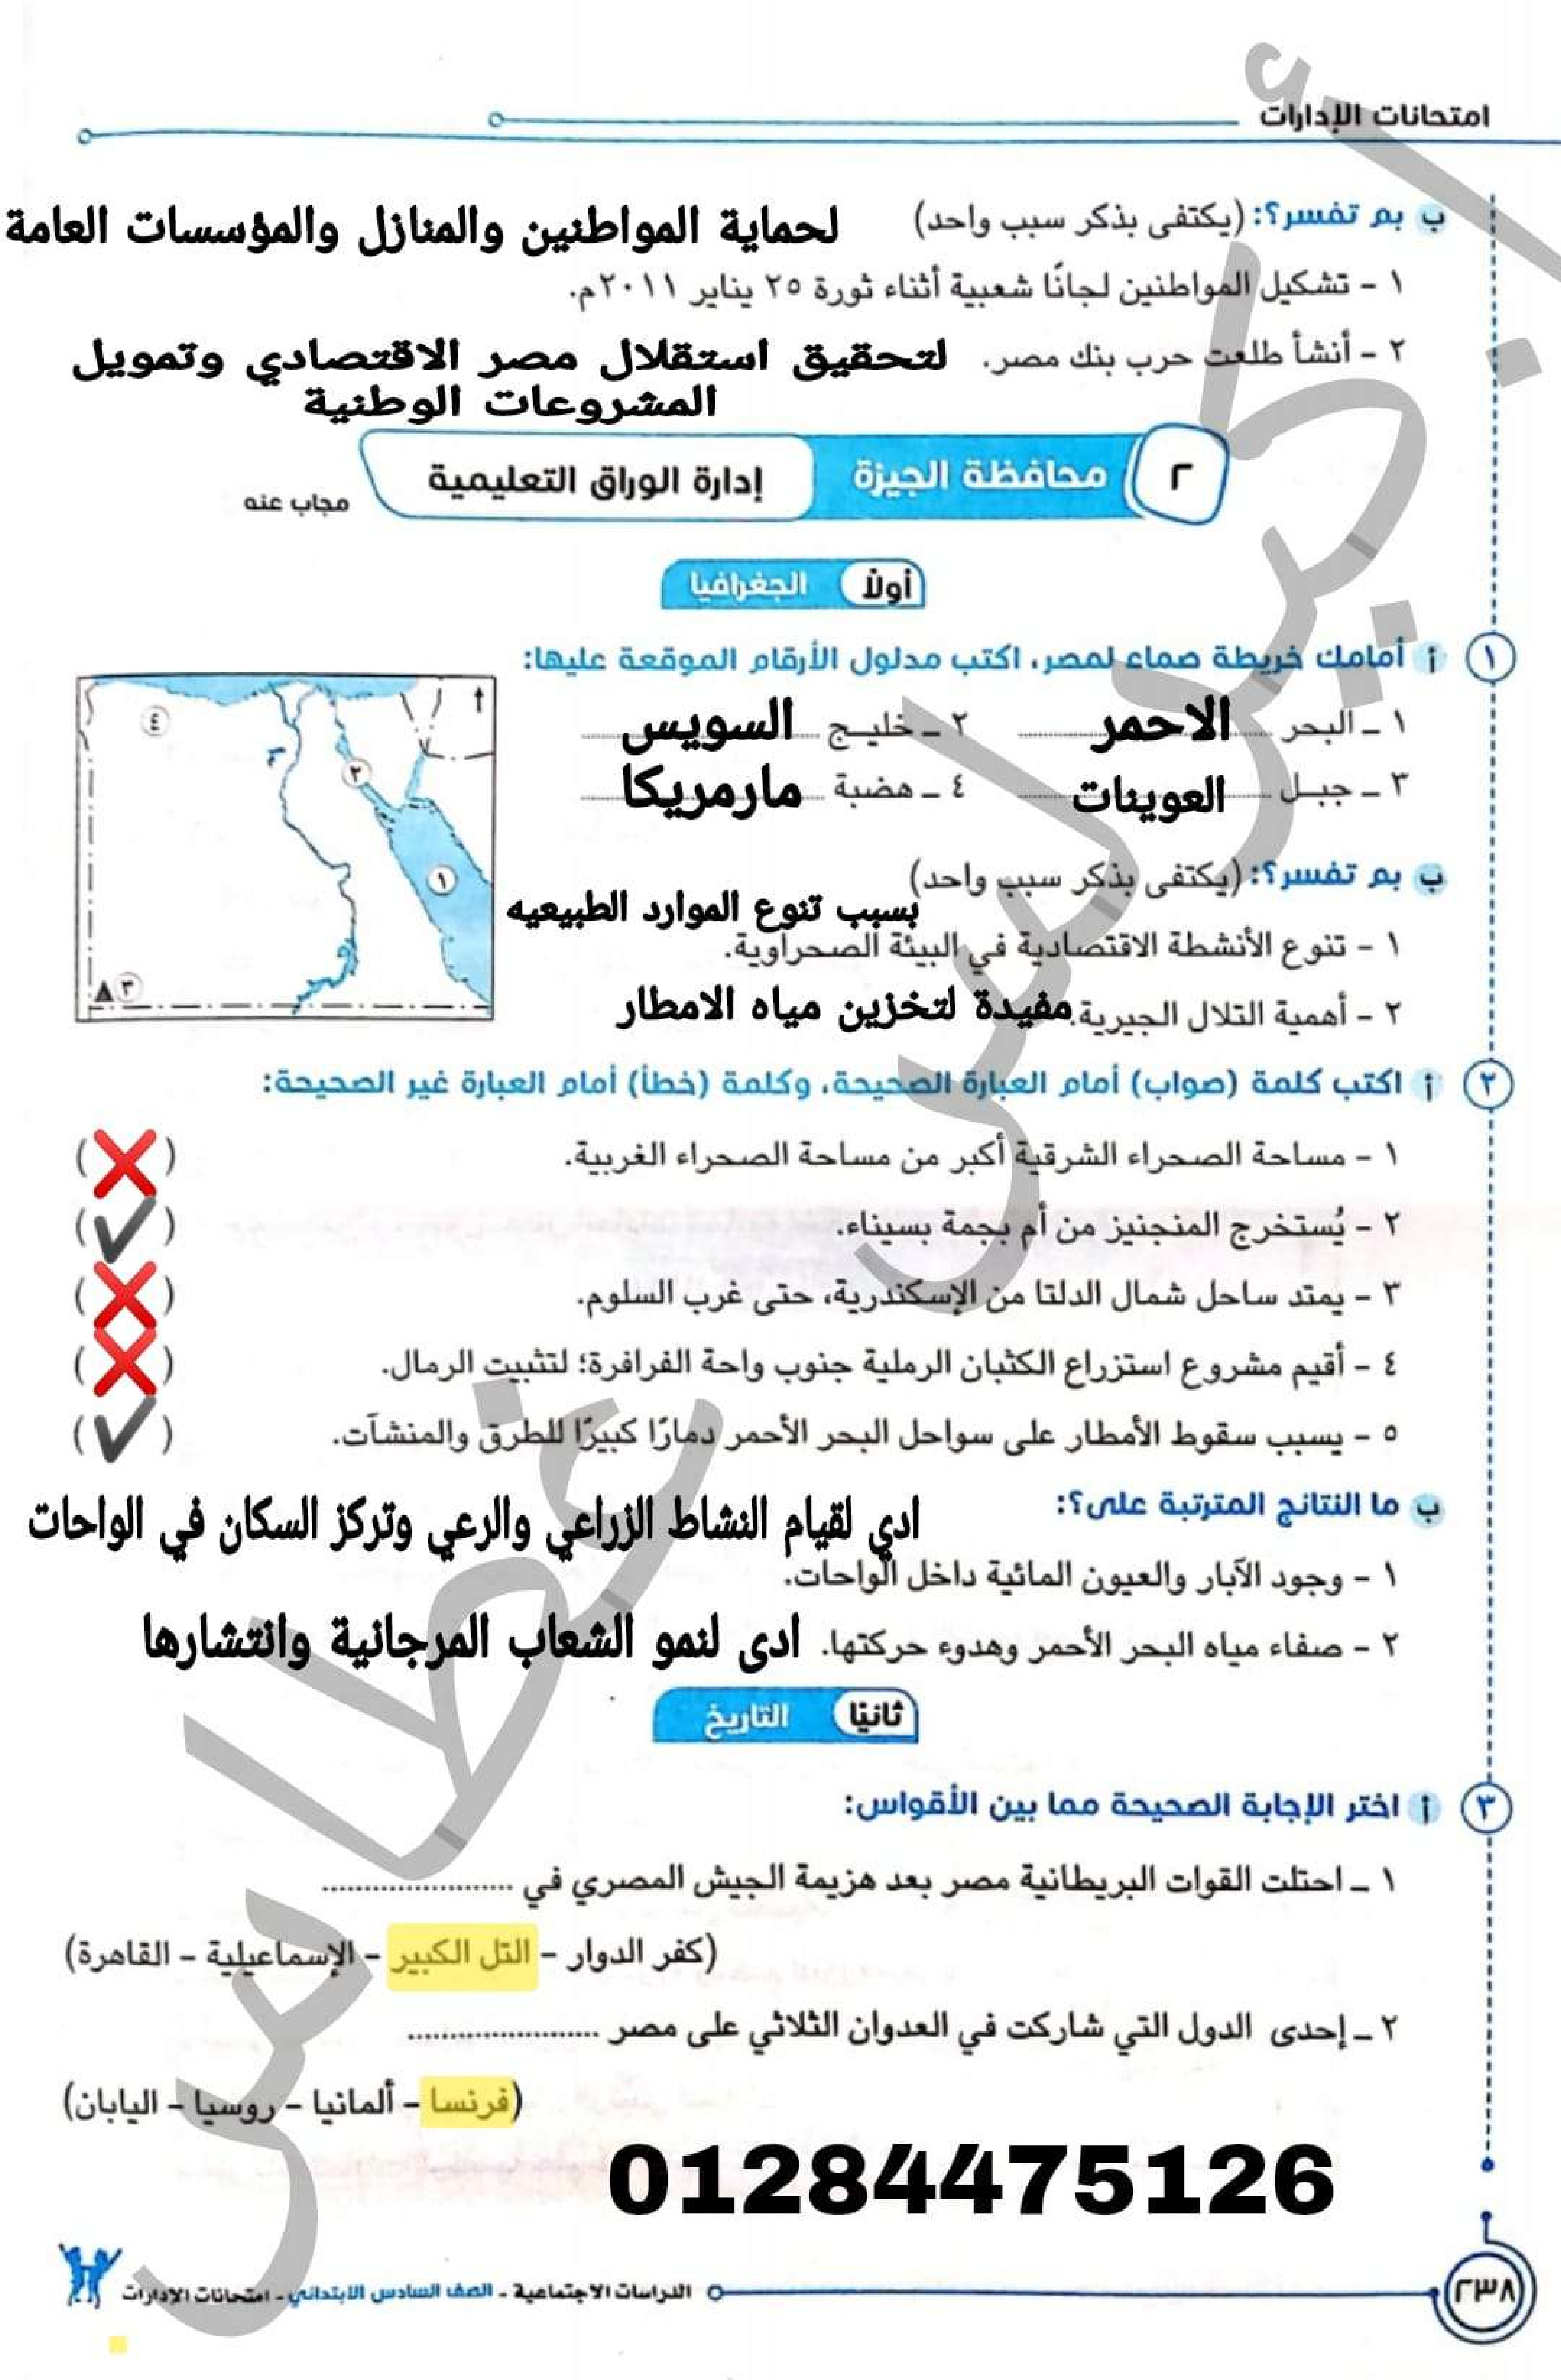 امتحانات الإدارات
ب بم تفسر؟: (يكتفى بذكر سبب واحد) لحماية المواطنين والمنازل والمؤسسات العامة
١ - تشكيل المواطنين لجانًا شعبية أثناء ثورة ٢٥ يناير ٢٠١١م.
٢ - أنشأ طلعت حرب بنك مصر. لتحقيق استقلال مصر الاقتصادي وتمويل
المشروعات الوطنية
٢ محافظة الجيزة إدارة الوراق التعليمية مجاب عنه
أولاً الجغرافيا
١ أ أمامك خريطة صماء لمصر، اكتب مدلول الأرقام الموقعة عليها:
١ ـ البحر الاحمر ٢ ـ خليج السويس
٣ ـ جبل العوينات ٤ ـ هضبة مارمريكا
٤
٢
١
٣
ب بم تفسر؟: (يكتفى بذكر سبب واحد)
بسبب تنوع الموارد الطبيعيه
١ - تنوع الأنشطة الاقتصادية في البيئة الصحراوية.
٢ - أهمية التلال الجيرية. مفيدة لتخزين مياه الامطار
٢ أ اكتب كلمة (صواب) أمام العبارة الصحيحة، وكلمة (خطأ) أمام العبارة غير الصحيحة:
١ - مساحة الصحراء الشرقية أكبر من مساحة الصحراء الغربية. (❌)
٢ - يُستخرج المنجنيز من أم بجمة بسيناء. (✔)
٣ - يمتد ساحل شمال الدلتا من الإسكندرية، حتى غرب السلوم. (❌)
٤ - أقيم مشروع استزراع الكثبان الرملية جنوب واحة الفرافرة؛ لتثبيت الرمال. (❌)
٥ - يسبب سقوط الأمطار على سواحل البحر الأحمر دمارًا كبيرًا للطرق والمنشآت. (✔)
ب ما النتائج المترتبة على؟: ادي لقيام النشاط الزراعي والرعي وتركز السكان في الواحات
١ - وجود الآبار والعيون المائية داخل الواحات.
٢ - صفاء مياه البحر الأحمر وهدوء حركتها. ادى لنمو الشعاب المرجانية وانتشارها
ثانيًا التاريخ
٣ أ اختر الإجابة الصحيحة مما بين الأقواس:
١ ـ احتلت القوات البريطانية مصر بعد هزيمة الجيش المصري في ......................
(كفر الدوار - التل الكبير - الإسماعيلية - القاهرة)
٢ ـ إحدى الدول التي شاركت في العدوان الثلاثي على مصر ......................
(فرنسا - ألمانيا - روسيا - اليابان)
01284475126
٢٣٨ الدراسات الاجتماعية - الصف السادس الابتدائي - امتحانات الإدارات